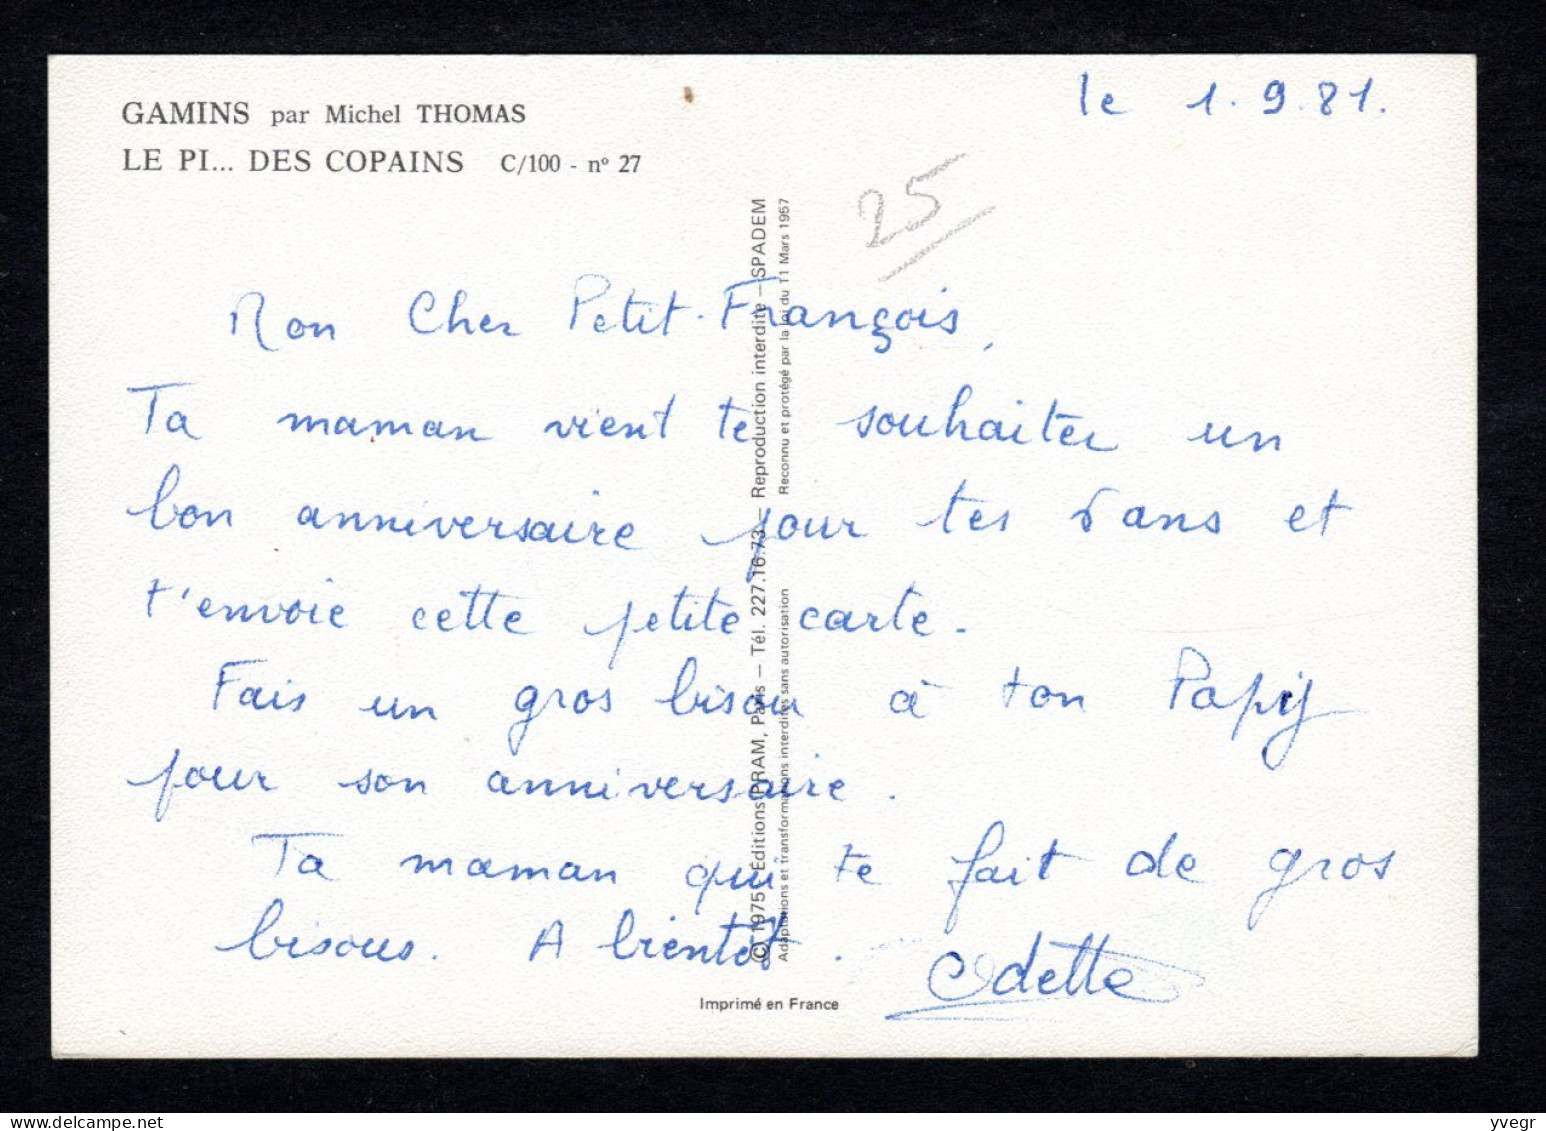 GAMINS par Michel THOMAS
LE PI... DES COPAINS C/100 - n° 27
le 1.9.81.
25
Mon Cher Petit-François,
Ta maman vient te souhaiter un
bon anniversaire pour tes 5 ans et
t'envoie cette petite carte.
Fais un gros bisou à ton Papy
pour son anniversaire.
Ta maman qui te fait de gros
bisous. A bientôt.
Odette
© 1975 Éditions PRAM, Paris — Tél. 227.16.73 — Reproduction interdite — SPADEM
Adaptations et transformations interdites sans autorisation Reconnu et protégé par la loi du 11 Mars 1957
Imprimé en France
yvegr